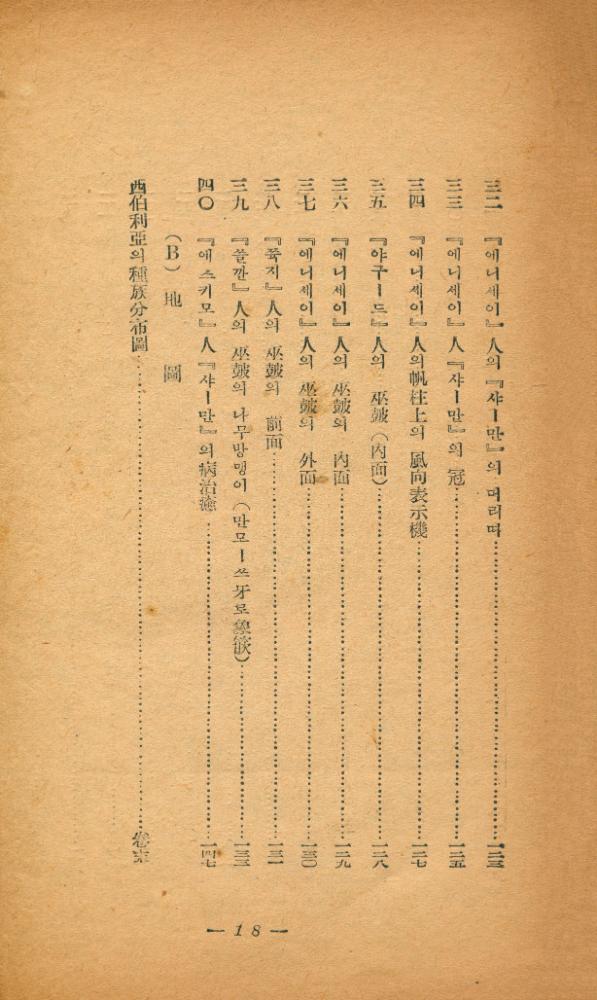 三二 『에니세이』人의『샤ー만』의 머리띠……一二三
三三 『에니세이』人『샤ー만』의 冠……一二五
三四 『에니세이』人의帆柱上의 風向表示機……一二七
三五 『야구ー드』人의 巫皷(內面)……一二八
三六 『에니세이』人의 巫皷의 內面……一二九
三七 『에니세이』人의 巫皷의 外面……一三〇
三八 『쭉지』人의 巫皷의 前面……一三一
三九 『쏠깐』人의 巫皷의 나무방맹이(만모ー쓰牙로象嵌)……一三三
四〇 『애스키모』人『샤ー만』의病治癒……一四七
(B) 地 圖
西伯利亞의種族分布圖……卷末
— 18 —